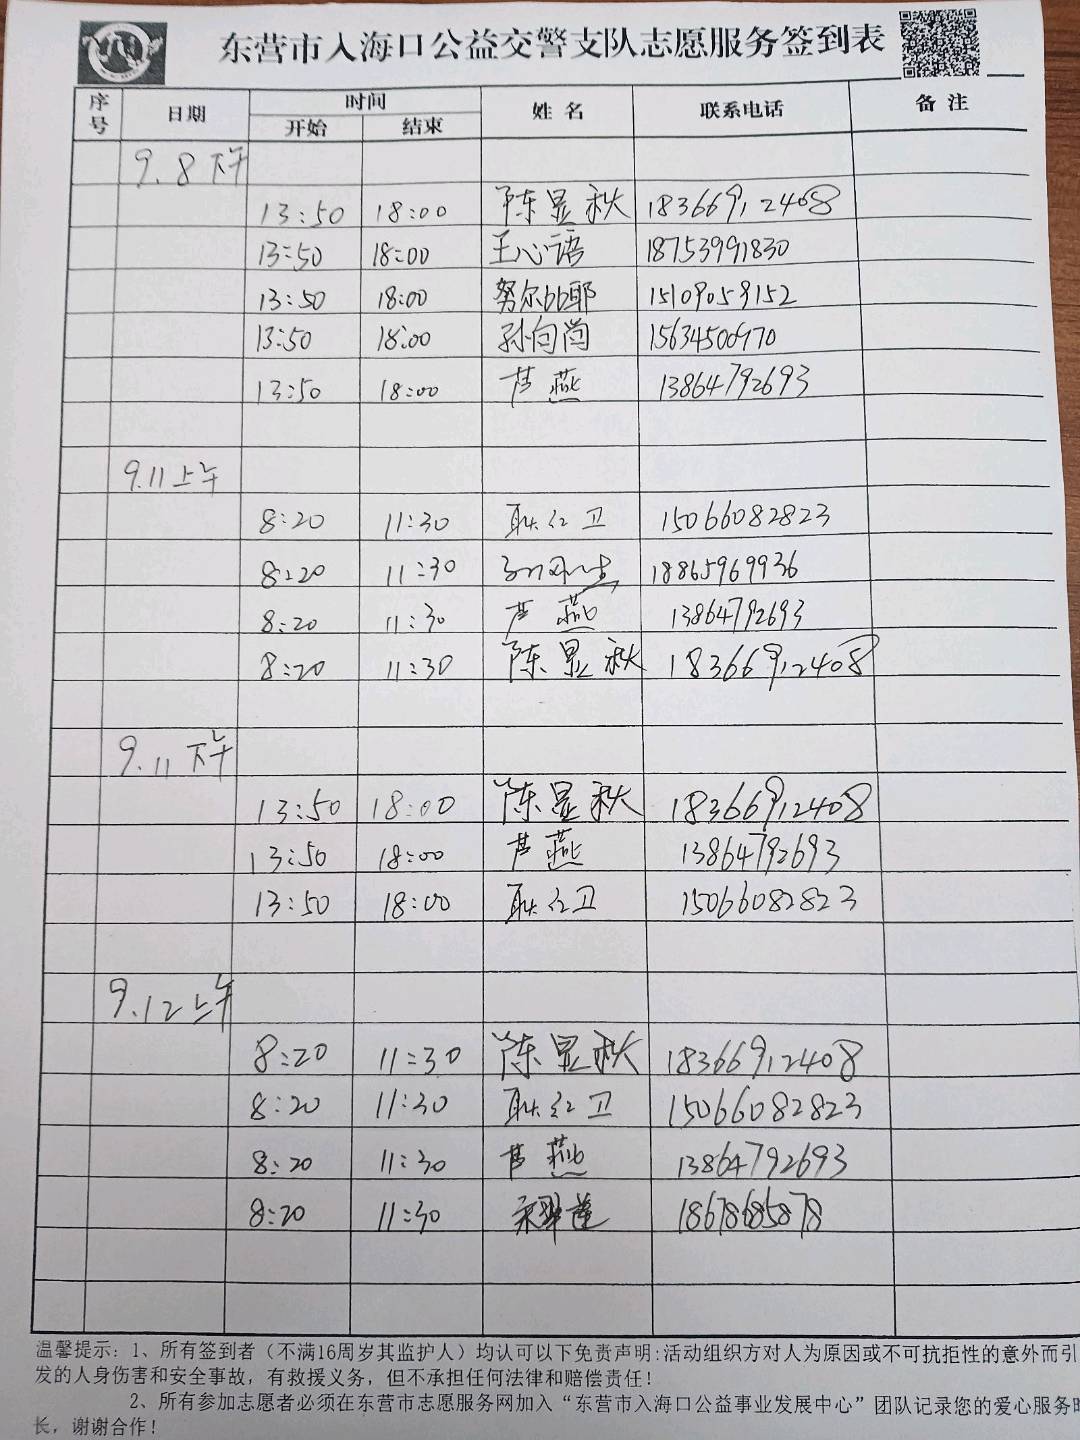 东营市入海口公益交警支队志愿服务签到表
序号 日期 时间 开始 结束 姓名 联系电话 备注
9.8下午
13:50 18:00 陈显秋 18366912408
13:50 18:00 王心语 18753991830
13:50 18:00 努尔比耶 15109059152
13:50 18:00 孙向尚
13:50 18:00 芦燕 13864792693
9.11上午
8:20 11:30 耿红卫 15066082823
8:20 11:30 18865969936
8:20 11:30 芦燕 13864792693
8:20 11:30 陈显秋 18366912408
9.11下午
13:50 18:00 陈显秋 18366912408
13:50 18:00 芦燕 13864792693
13:50 18:00 耿红卫 15066082823
9.12上午
8:20 11:30 陈显秋 18366912408
8:20 11:30 耿红卫 15066082823
8:20 11:30 芦燕 13864792693
8:20 11:30
温馨提示: 1、所有签到者（不满16周岁其监护人）均认可以下免责声明:活动组织方对人为原因或不可抗拒性的意外而引
发的人身伤害和安全事故，有救援义务，但不承担任何法律和赔偿责任！
2、所有参加志愿者必须在东营市志愿服务网加入“东营市入海口公益事业发展中心”团队记录您的爱心服务时
长，谢谢合作！